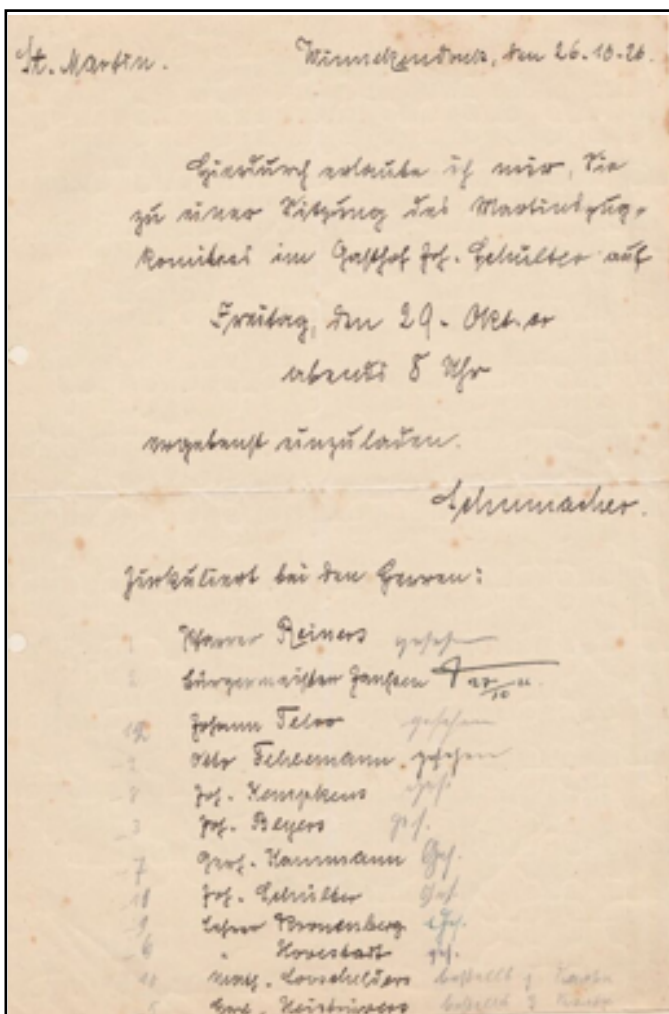 St. Martin. Winnekendonk, den 26.10.26.
Hierdurch erlaube ich mir, Sie
zu einer Sitzung des Martinszug-
komitees im Gasthof Joh. Schülter auf
Freitag, den 29. Okt. er
abends 8 Uhr
ergebenst einzuladen.
Schumacher.
Zirkuliert bei den Herren:
1 Pfarrer Reiners gesehen
2 Bürgermeister Janssen 27/10
12 Johann gesehen
Tehlemann gesehen
8 Joh. Kempkens ges.
3 Joh. Beyers ges.
7 Gerh. Kammann Ges.
11 Joh. Schülter Ges.
9 Lehrer Kronenberg Ges.
6 " Hovestadt ges.
10 bestellt
5 Gerh. bestellt 3